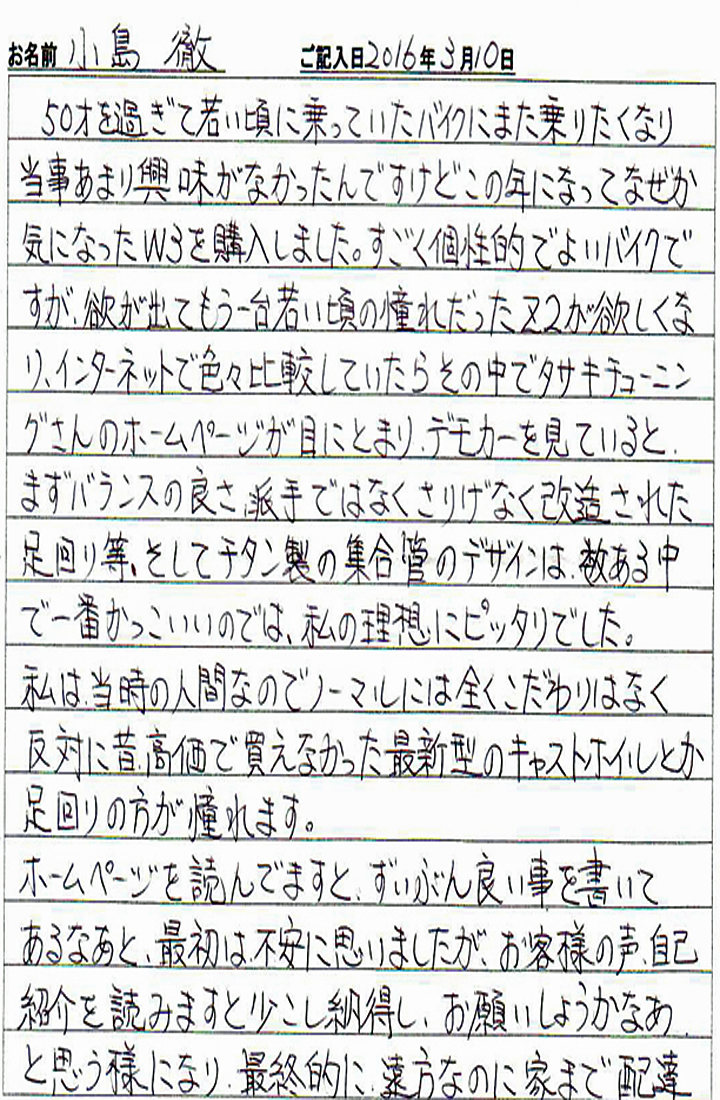 お名前 小島 徹 ご記入日2016年3月10日
50才を過ぎて若い頃に乗っていたバイクにまた乗りたくなり
当事あまり興味がなかったんですけどこの年になってなぜか
気になったW3を購入しました。すごく個性的でよいバイクで
すが、欲が出てもう一台若い頃の憧れだったZ2が欲しくな
り、インターネットで色々比較していたらその中でタサキチューニン
グさんのホームページが目にとまり、デモカーを見ていると、
まずバランスの良さ、派手ではなくさりげなく改造された
足回り等、そしてチタン製の集合管のデザインは、数ある中
で一番かっこいいのでは、私の理想にピッタリでした。
私は、当時の人間なのでノーマルには全くこだわりはなく
反対に昔、高価で買えなかった最新型のキャストホイルとか
足回りの方が憧れます。
ホームページを読んでますと、ずいぶん良い事を書いて
あるなあと、最初は、不安に思いましたが、お客様の声、自己
紹介を読みますと少こし納得し、お願いしようかなあ
と思う様になり、最終的に、遠方なのに家まで配達